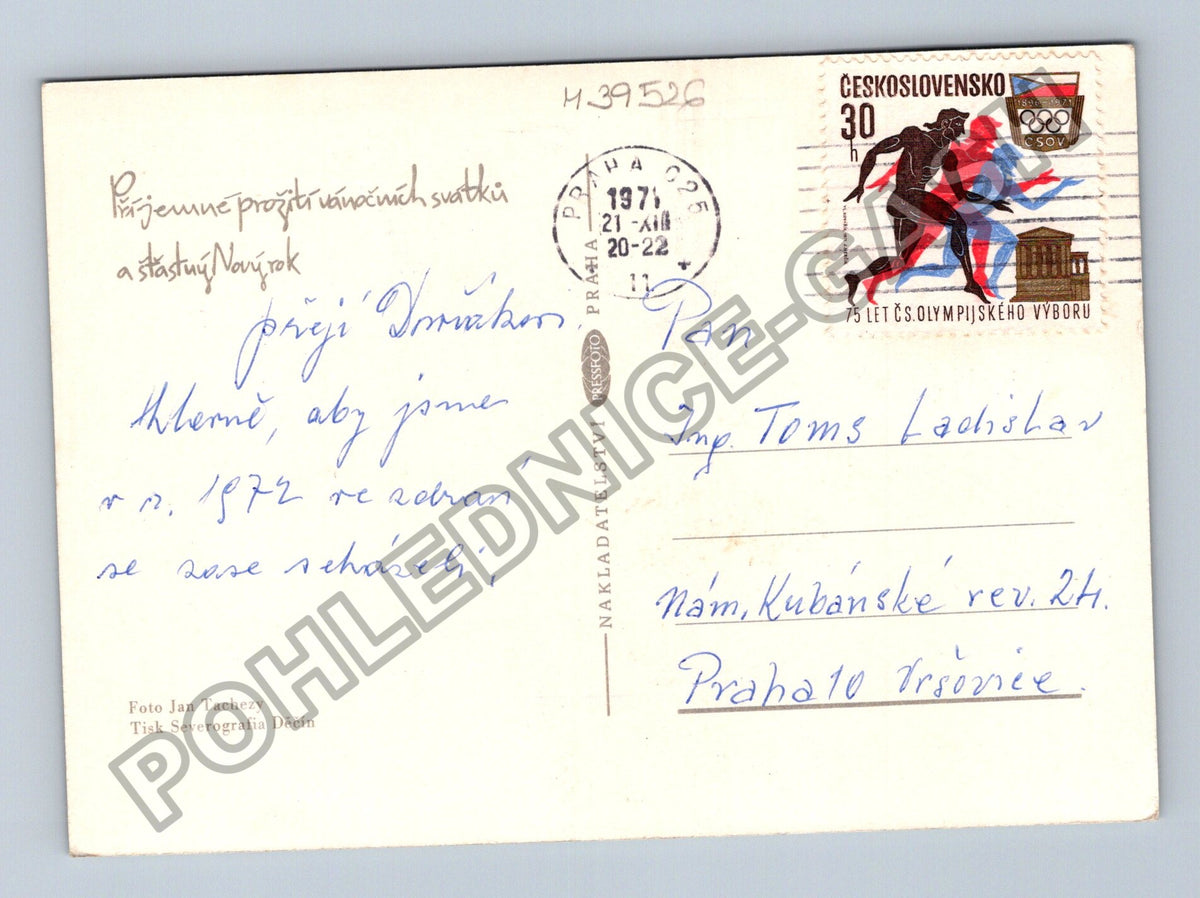 H 39526
ČESKOSLOVENSKO
30
h
1896-1971
ČSOV
75 LET ČS. OLYMPIJSKÉHO VÝBORU
PRAHA 025
1971
21.-XII
20-22
11
Příjemné prožití vánočních svátků
a šťastný Nový rok
přejí
aby jsme
v r. 1972 ve zdraví
se zase scházeli,
Foto Jan Tachezy
Tisk Severografia Děčín
NAKLADATELSTVÍ PRESSFOTO PRAHA
Pan
Ing. Toms Ladislav
nám. Kubánské rev. 24.
Praha 10 Vršovice.
POHLEDNICE-GASH